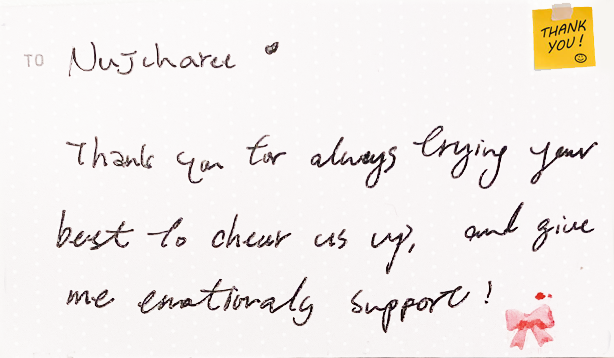 THANK
YOU!
TO Nujcharee
Thank you for always trying your
best to chear us up, and give
me emotionaly support!